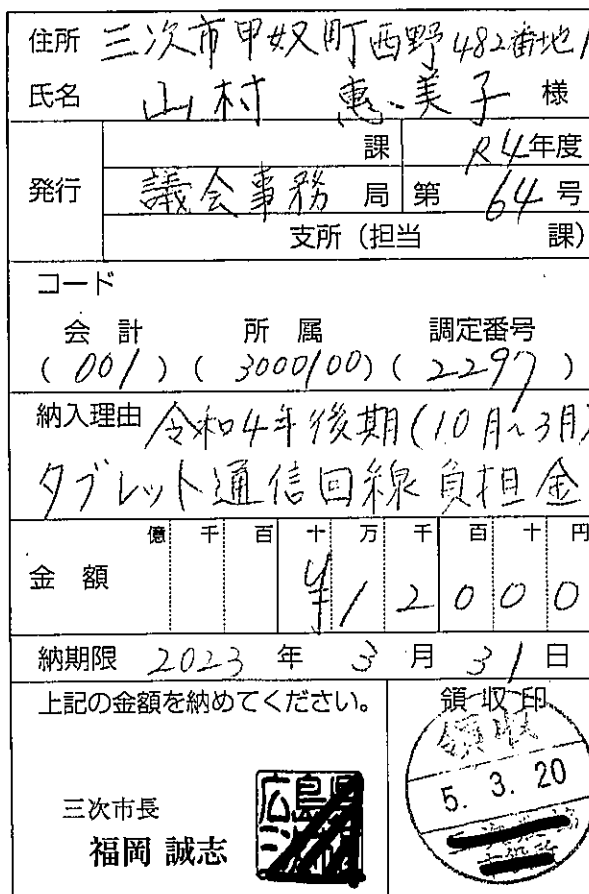 住所 三次市甲奴町西野482番地1
氏名 山村 惠美子 様
課 R4年度
発行 議会事務局 第64号
支所(担当 課)
コード
会計 所属 調定番号
(001)(3000100)(2297)
納入理由 令和4年後期(10月~3月)
タブレット通信回線負担金
億 千 百 十 万 千 百 十 円
金額 ¥12000
納期限 2023年3月31日
上記の金額を納めてください。
領収印
5.3.20
三次市長
福岡 誠志
広島県